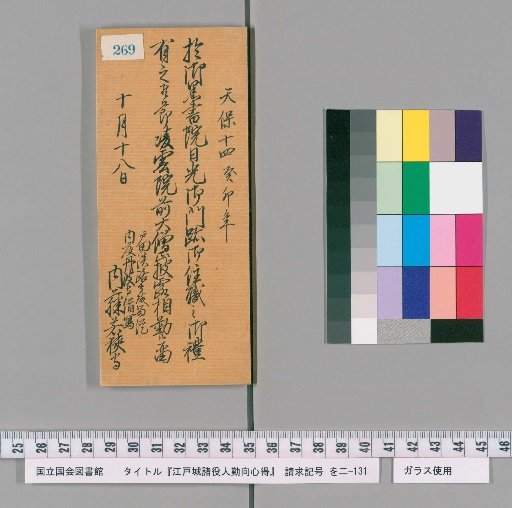 269
天保十四癸卯年
於御黒書院日光御門跡御住職之御禮
有之節凌雲院前大僧正披露相勤候留
十月十八日
内藤若狭守
25 26 27 28 29 30 31 32 33 34 35 36 37 38 39 40 41 42 43 44 45 46
国立国会図書館 タイトル『江戸城諸役人勤向心得』 請求記号 を二-131 ガラス使用